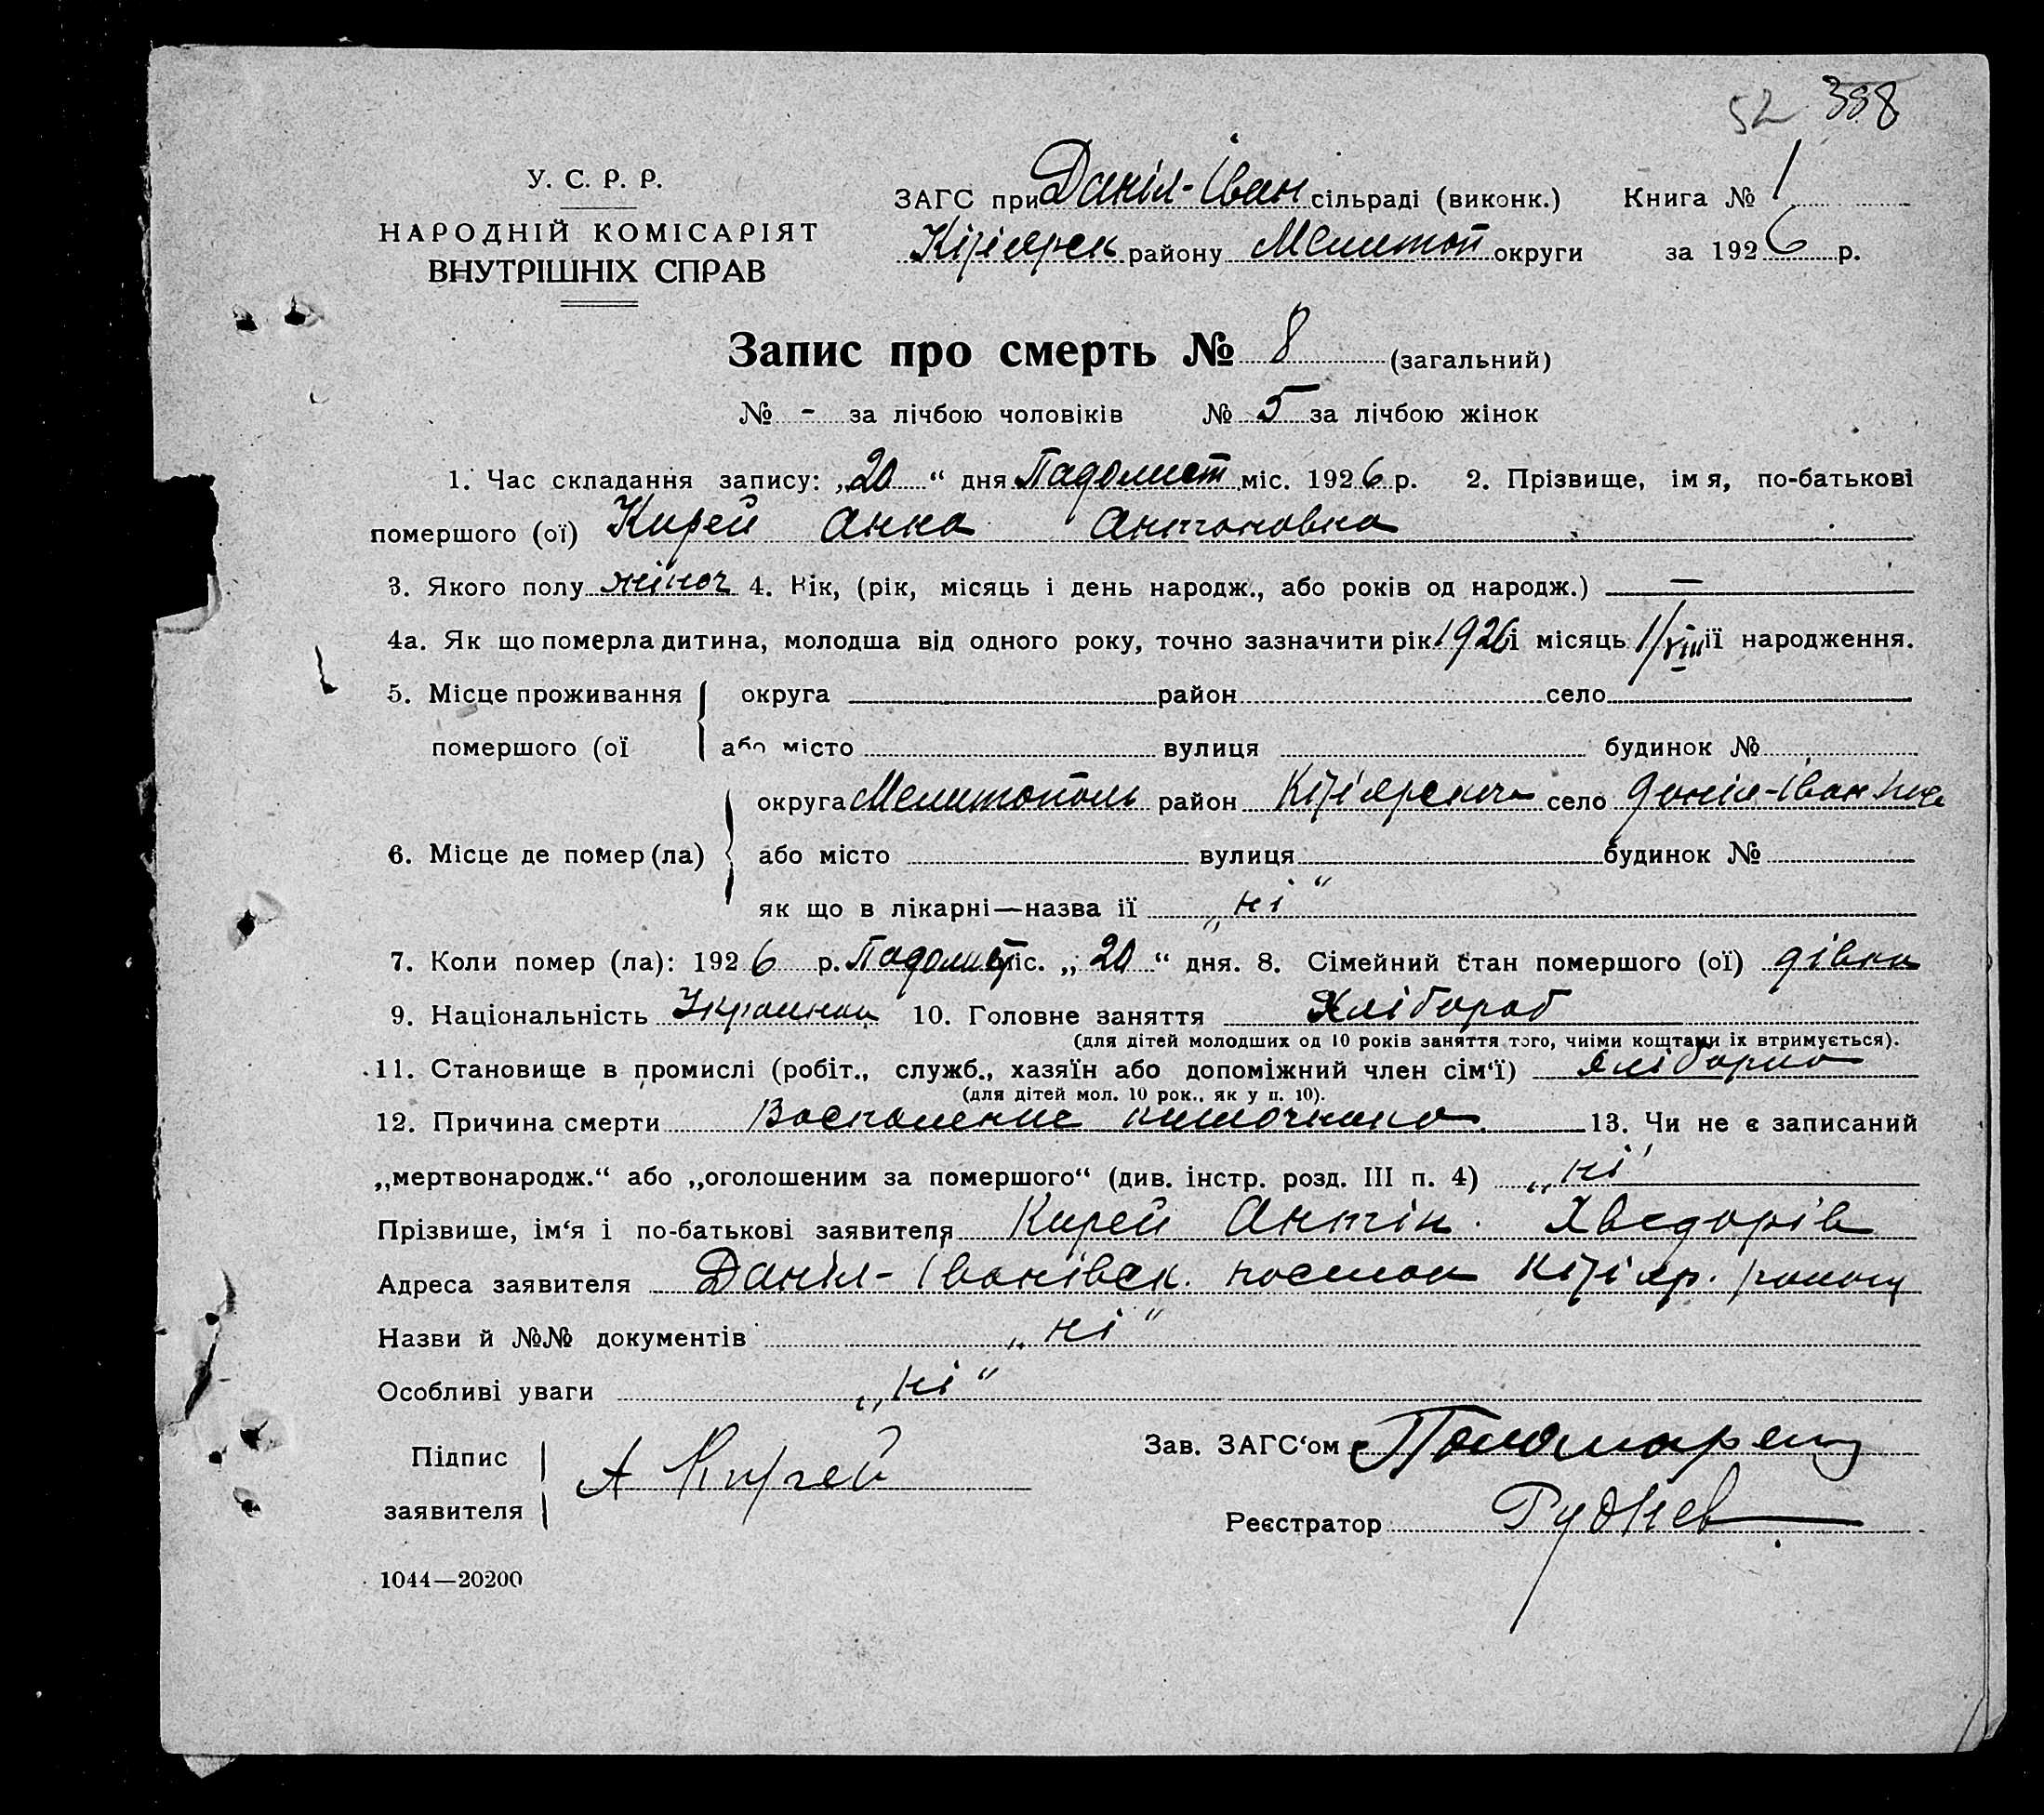 52 388
У. С. Р. Р.
НАРОДНІЙ КОМІСАРІЯТ
ВНУТРІШНІХ СПРАВ
ЗАГС при Даніл-Іван сільраді (виконк.) Книга № 1
Кізіярск району Мелитоп округи за 1926 р.
Запис про смерть № 8 (загальний)
№ - за лічбою чоловіків № 5 за лічбою жінок
1. Час складання запису: „20“ дня Падолист міс. 1926 р. 2. Прізвище, ім я, по-батькові
помершого (ої) Кирей Анна Антоновна
3. Якого полу жіноч 4. Вік, (рік, місяць і день народж., або років од народж.) —
4а. Як що померла дитина, молодша від одного року, точно зазначити рік 1926 і місяць 1/VIII її народження.
5. Місце проживання округа район село
помершого (ої або місто вулиця будинок №
округа Мелитополь район Кізіярськ село Даніл-Іванівка
6. Місце де помер (ла) або місто вулиця будинок №
як що в лікарні—назва її „ні“
7. Коли помер (ла): 1926 р. Падолист міс. „20“ дня. 8. Сімейний стан помершого (ої) дівка
9. Національність Украинка 10. Головне заняття Хлібороб
(для дітей молодших од 10 років заняття того, чиїми коштами їх втримується).
11. Становище в промислі (робіт., служб., хазяїн або допоміжний член сім‘ї)
(для дітей мол. 10 рок., як у п. 10).
12. Причина смерти Воспаление 13. Чи не є записаний
„мертвонародж.“ або „оголошеним за помершого“ (див. інстр. розд. III п. 4) „ні“
Прізвише, ім‘я і по-батькові заявителя Кирей Антін Хведорів
Адреса заявителя Даніл-Іванівск. Кізіяр. району
Назви й №№ документів „ні“
Особливі уваги „ні“
Підпис
заявителя А Кирей
Зав. ЗАГС‘ом Пономаренц
Реєстратор Руднев
1044—20200